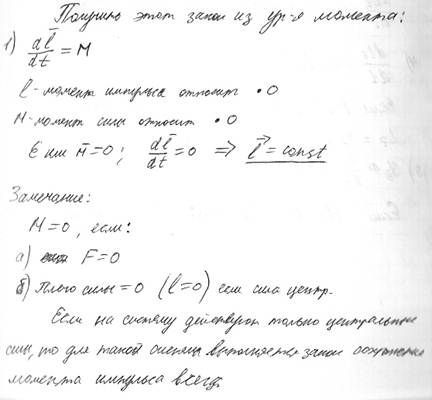 Получить этот закон из ур-я момента:
1) dl̄/dt = M
l - момент импульса относит • O
M - момент силы относит • O
Если M̄=0; dl̄/dt = 0 ⇒ l⃗ = const
Замечание:
M=0, если:
а) F=0
б) Плечо силы = 0 (l=0) если сила центр.
Если на систему действуют только центральные
силы, то для такой системы выполняется закон сохранения
момента импульса всегда